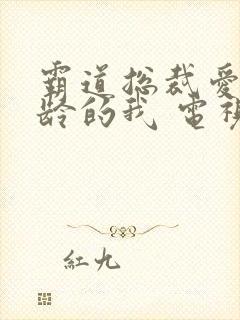 霸道总裁爱
龄的我 電視
紅九